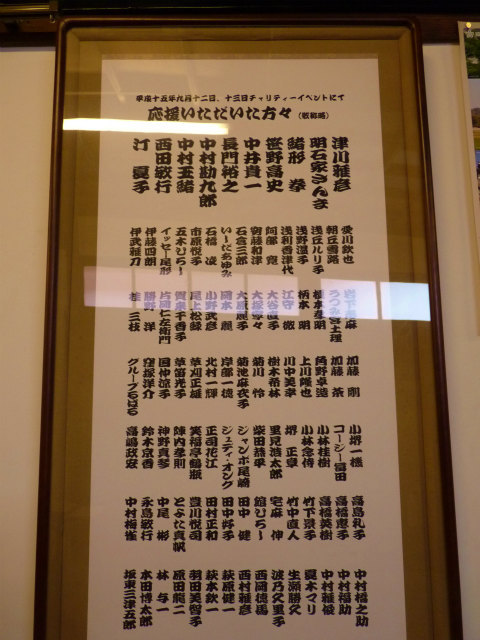 平成十五年九月十二日、十三日チャリティーイベントにて
応援いただいた方々(敬称略)
津川雅彦
明石家さんま
緒形 拳
笹野高史
中井貴一
長門裕之
中村勘九郎
中村玉緒
西田敏行
汀 夏子
愛川欽也
朝丘雪路
浅丘ルリ子
浅野温子
浅利香津代
阿部 寛
安藤和津
石倉三郎
いしだあゆみ
石橋 凌
市原悦子
五木ひろし
イッセー尾形
伊藤四朗
伊武雅刀
岩下志麻
うつみ宮土理
榎木孝明
柄本 明
江守 徹
大谷直子
大塚寧々
大原麗子
岡本 麗
小野武彦
尾上松緑
賀来千香子
片岡仁左衛門
勝野 洋
桂 三枝
加藤 剛
加藤 茶
角野卓造
上川隆也
川中美幸
樹木希林
菊川 怜
菊池麻衣子
岸部一徳
北村一輝
草刈正雄
草笛光子
国仲涼子
窪塚洋介
グループるぱる
小堺一機
コージー冨田
小林桂樹
小林念侍
堺 正章
里見浩太郎
柴田恭平
ジャンボ尾崎
ジュディ・オング
正司花江
笑福亭鶴瓶
陣内孝則
神野真琴
鈴木京香
高嶋政宏
高島礼子
高橋恵子
高橋英樹
竹下景子
竹中直人
宅麻 伸
舘ひろし
田中 健
田中好子
田村正和
豊川悦司
とよた真帆
中尾 彬
永島敏行
中村梅雀
中村橋之助
中村福助
中村雅俊
夏木マリ
生瀬勝久
波乃久里子
西岡徳馬
西村雅彦
萩原健一
萩本欽一
羽田美智子
原田龍二
林 与一
本田博太郎
坂東三津五郎